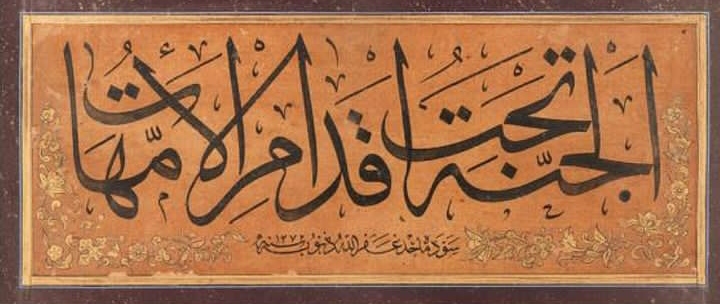 الجنّة تحت اقدام الامّهات
سوده احمد غفر الله ذنوبه